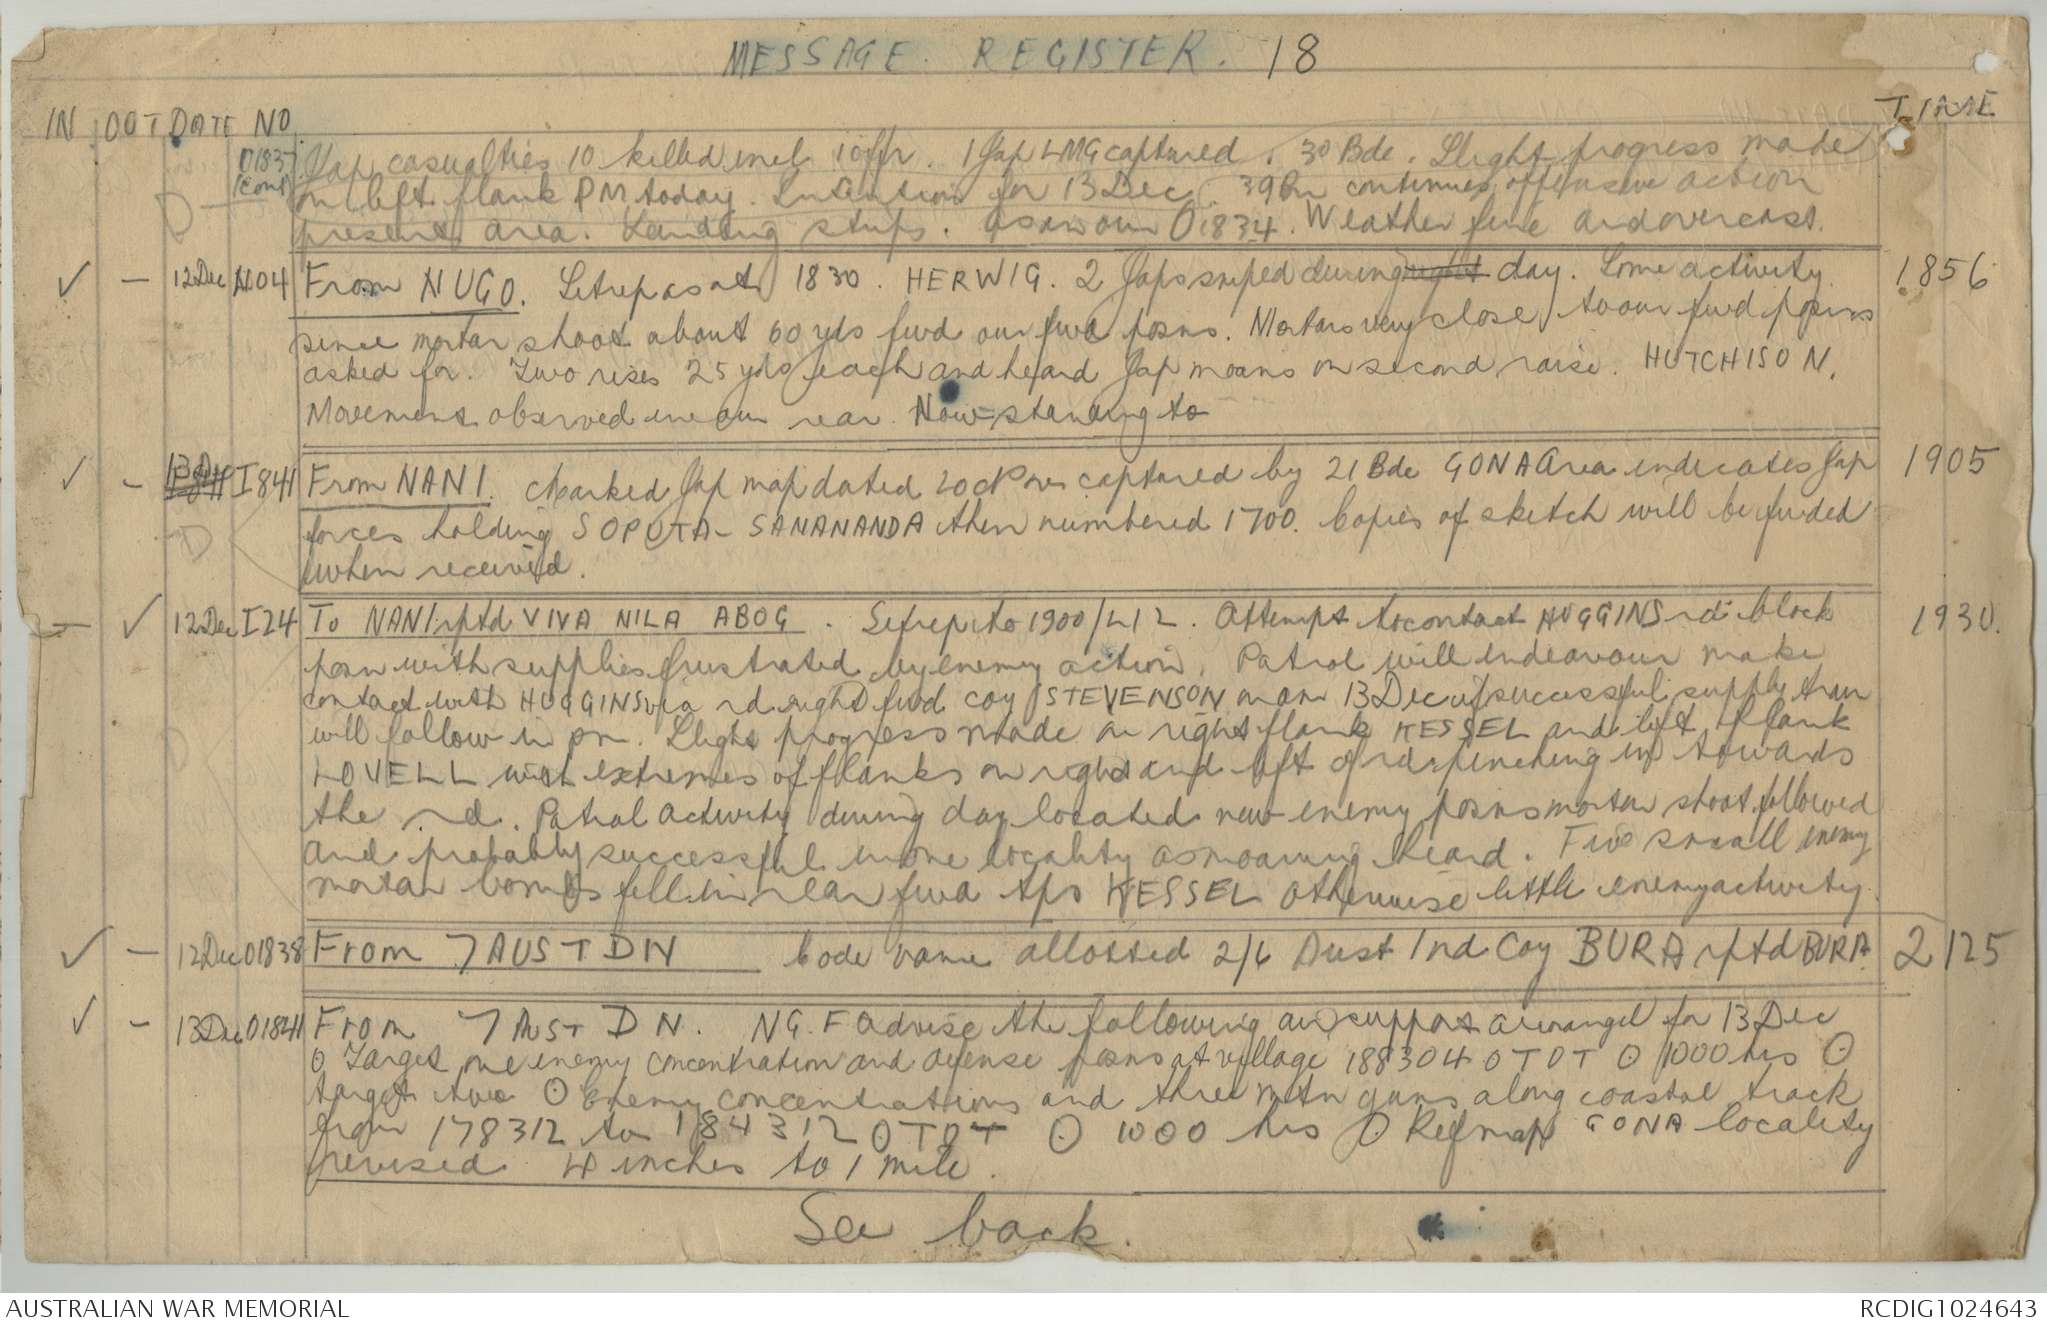 MESSAGE. REGISTER. 18
IN OUT DATE NO TIME
O1837 (cont) Jap casualties 10 killed incl 1 offr. 1 Jap LMG captured. 30 Bde. Slight progress made
on left flank PM today. Intention for 13 Dec. 39 Bn continues offensive action
present area. Landing strips. as in our O1834. Weather fine and overcast.
✓ – 12 Dec N04 From NUGO. Sitrep as at 1830. HERWIG. 2 Japs sniped during night day. Some activity 1856
since mortar shoot about 60 yds fwd our fwd posns. Mortars very close to our fwd posns
asked for. Two rises 25 yds each and heard Jap moans on second raise. HUTCHISON.
Movement observed in our rear. Now standing to
✓ – 13 Dec I841 From NANI. Marked Jap map dated 20 Nov captured by 21 Bde GONA area indicates Jap 1905
forces holding SOPUTA – SANANANDA then numbered 1700. Copies of sketch will be fwded
when received.
– ✓ 12 Dec I24 To NANI rptd VIVA NILA ABOG. Sitrep to 1900/L12. Attempt to contact HUGGINS rd block 1930.
posn with supplies frustrated by enemy action. Patrol will endeavour make
contact with HUGGINS via rd right fwd coy STEVENSON morn 13 Dec if successful supply train
will follow in pm. Slight progress made on right flank KESSEL and left flank
LOVELL with extremes of flanks on right and left of rd pinching in towards
the rd. Patrol activity during day located new enemy posns mortar shoot followed
and probably successful in one locality as moaning heard. Five small enemy
mortar bombs fell in rear fwd tps KESSEL otherwise little enemy activity.
✓ – 12 Dec O1838 From 7 AUST DIV Code name allotted 2/6 Aust Ind Coy BURA rptd BURA. 2125
✓ – 13 Dec O1841 From 7 AUST DIV. NGF advise the following air support arranged for 13 Dec
O Target one enemy concentration and defense posns at village 188304 O TOT O 1000 hrs O
target two O Enemy concentrations and three mtn guns along coastal track
from 178312 to 184312 O TOT O 1000 hrs O Ref map GONA locality
revised 4 inches to 1 mile.
See back.
AUSTRALIAN WAR MEMORIAL RCDIG1024643